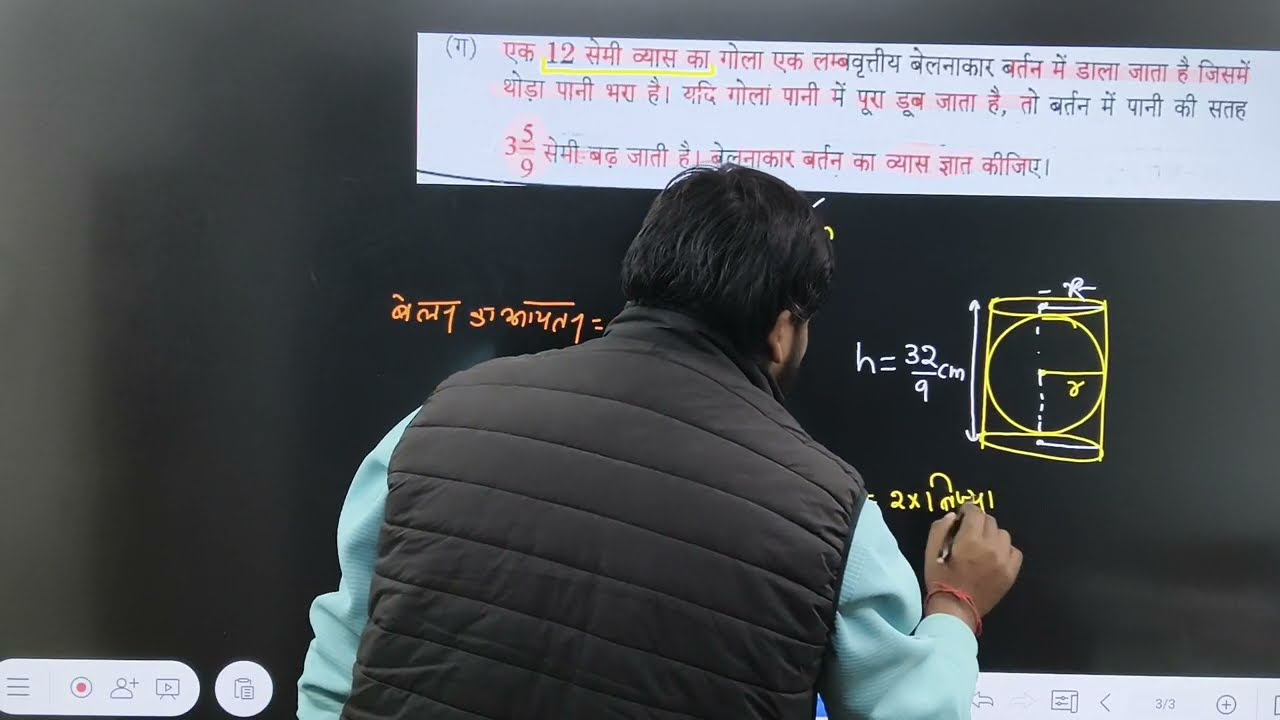 (ग) एक 12 सेमी व्यास का गोला एक लम्बवृत्तीय बेलनाकार बर्तन में डाला जाता है जिसमें
थोड़ा पानी भरा है। यदि गोला पानी में पूरा डूब जाता है, तो बर्तन में पानी की सतह
3 5/9 सेमी बढ़ जाती है। बेलनाकार बर्तन का व्यास ज्ञात कीजिए।
बेलन का आयतन =
R
h = 32/9 cm
r
= 2 × त्रिज्या
3/3